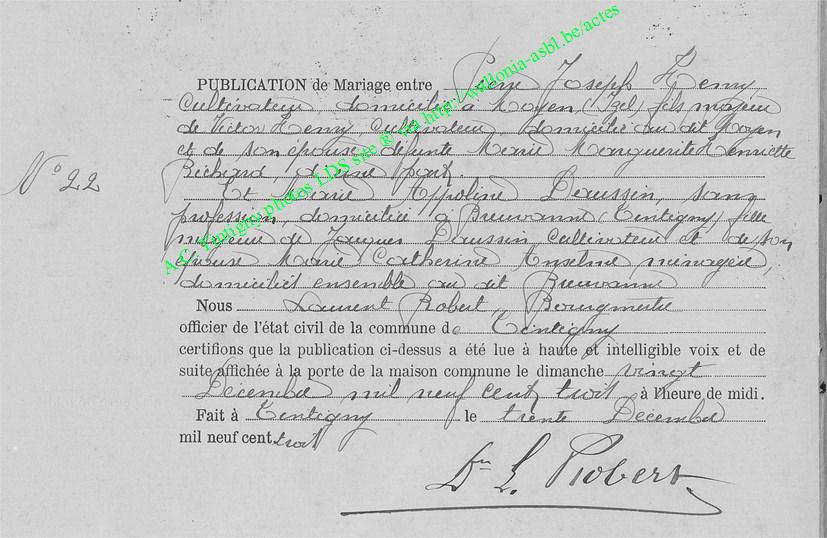 PUBLICATION de Mariage entre Pierre Joseph Henry
Cultivateur, domicilié à Moyen (Izel) fils majeur
de Victor Henry, Cultivateur, domicilié au dit Moyen
et de son épouse défunte Marie Marguerite Henriette
Richard, d'une part.
N° 22
Et Marie Appoline Daussin, sans
profession, domiciliée à Breuvanne (Tintigny) fille
majeure de Jacques Daussin Cultivateur et de son
épouse Marie Catherine Anselme ménagère,
domiciliés ensemble au dit Breuvanne
Nous Laurent Robert, Bourgmestre
officier de l'état civil de la commune de Tintigny
certifions que la publication ci-dessus a été lue à haute et intelligible voix et de
suite affichée à la porte de la maison commune le dimanche vingt
Décembre mil neuf cent trois à l'heure de midi.
Fait à Tintigny le trente Décembre
mil neuf cent trois
Dr L. Robert
A.C. Tintigny photos LDS site ® via http://wallonia-asbl.be/actes